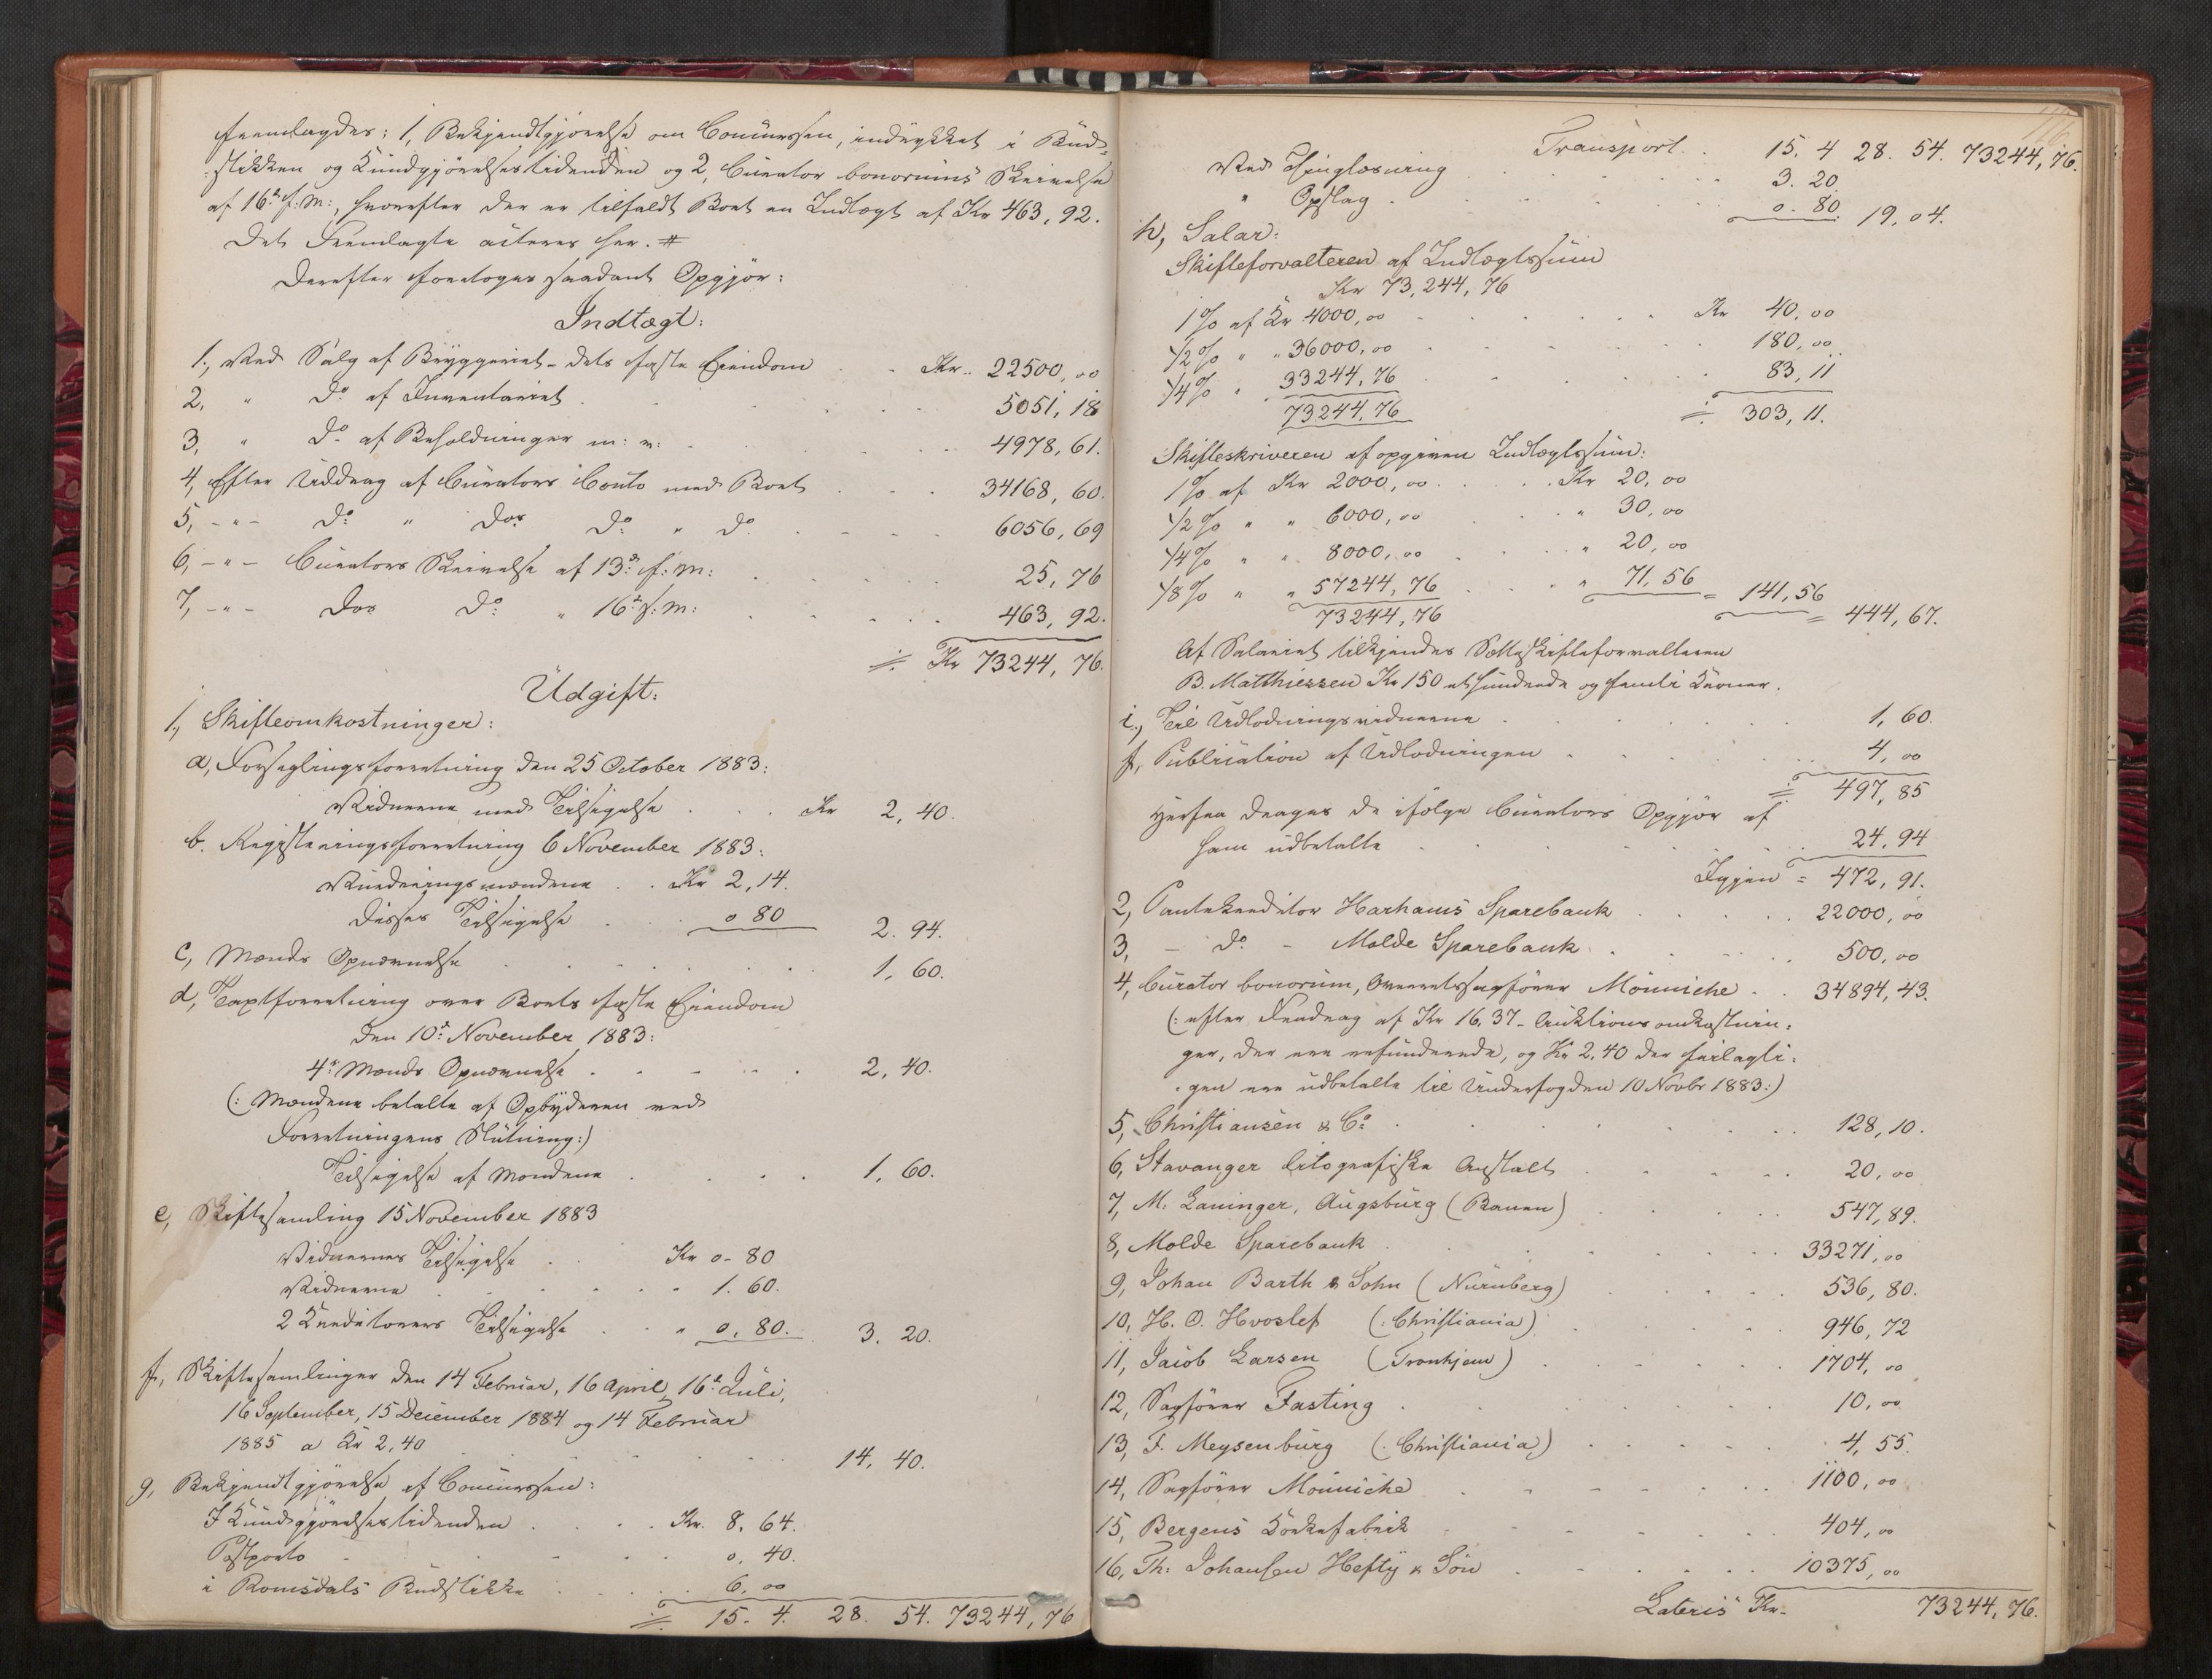 fremlagdes: 1, Bekjendtgjørelse om Concurssen, indrykket i Bud-
stikken og Kundgjørelsestidenden og 2, Curator bonorums Skrivelse
af 16de f: M:, hvorefter der er tilfaldt Boet en Indtægt af Kr 463,92.
Det Fremlagte acteres her. #
Derefter foretoges saadant Opgjør:
Indtægt:
1, Ved Salg af Bryggeriet - dets faste Eiendom . . Kr. 22500,00
2, " Do af Inventariet . . . 5051,18
3, " Do af Beholdninger m: v: . . . 4978,61.
4, Efter Uddrag af Curators Conto med Boet . . . 34168,60.
5, -"- Do " Dos Do " Do . . . 6056,69
6, -"- Curators Skrivelse af 13de f: M: . . . 25,76
7, -"- Dos Do " 16de f: M: . . . 463,92.
÷ Kr 73244,76.
Udgift:
1, Skifteomkostninger:
a, Forseglingsforretning den 25 October 1883:
Vidnerne med Tilsigelse . . . Kr 2,40.
b. Registreringsforretning 6 November 1883:
Vurderingsmændene . . Kr 2,14.
disses Tilsigelse . . 0 80 2.94.
c, Mænds Opnævnelse . . . 1,60.
d, Taxtforretning over Boets faste Eiendom
den 10de November 1883:
4re Mænds Opnævnelse . . . 2,40.
(: Mændene betalte af Opbyderen ved
Forretningens Slutning:)
Tilsigelse af Mændene . . . 1,60.
e, Skiftesamling 15 November 1883
Vidnernes Tilsigelse . . Kr 0-80
Vidnerne . . . " 1.60.
2 Kreditorers Tilsigelse . . " 0,80. 3.20.
f, Skiftesamlinger den 14 Februar, 16 April, 16de Juli,
16 September, 15 December 1884 og 14 Februar
1885 a Kr 2,40 . . . 14,40.
g, Bekjendtgjørelse af Concurssen:
I Kundgjørelsestidenden . . . Kr. 8,64.
Postporto . . . 0,40.
i Romsdals Budstikke . . . 6,00
÷ 15-4. 28.54. 73244,76
Transport . . 15.4 28.54. 73244,76.
Ved Thinglæsning . . . 3.20.
" Opslag . . . 0.80 19,04.
h, Salær:
Skifteforvalteren af Indtægtssum
Kr 73,244,76
1% af Kr 4000,00 . . . Kr 40,00
1/2% " " 36000,00 . . . 180,00
1/4% " 33244,76 . . . 83,11
73244,76 ÷ 303,11.
Skifteskriveren af opgiven Indtægtssum:
1% af Kr 2000,00 . . . Kr 20,00
1/2% " " 6000,00 . . " 30,00
1/4% " " 8000,00 . . " 20,00
1/8% " " 57244,76 . . " 71,56 = 141,56
73244,76 = 444,67.
Af Salæriet tilkjendes Sætteskifteforvalteren
B. Matthiessen Kr 150 ethundrede og femti Kroner.
i, Til Udlodningsvidnerne . . . 1,60.
k, Publication af Udlodningen . . . 4,00
÷ 497,85
Herfra drages de ifølge Curators Opgjør af
ham udbetalte . . . 24,94
Igjen = 472,91.
2, Pantekreditor Harhams Sparebank . . . 22000,00
3, - Do - Molde Sparebank . . . 500,00
4, Curator bonorum, Overretssagfører Mönniche . . 34894,43.
(: efter Fradrag af Kr 16,37- Auktionsomkostnin-
ger, der ere refunderede, og Kr 2,40 der feilagti-
gen ere udbetalte til Underfogden 10 Novbr 1883:)
5, Christiansen & Co . . . 128,10.
6, Stavanger litografiske Anstalt . . . 20,00
7, M. Laninger, Augsburg (Bayern) . . . 547,89.
8, Molde Sparebank . . . 33271,00
9, Johan Barth & Sohn (Nürnberg) . . . 536,80.
10, H. O. Hvoslef (Christiania) . . . 946,72
11, Jacob Larsen (Tronhjem) . . . 1704,00
12, Sagfører Fasting . . . 10,00
13, F. Meysenburg (Christiania) . . . 4,55.
14, Sagfører Mönniche . . . 1100,00
15, Bergens Korkefabrik . . . 404,00
16, Th: Johansen Hefty & Søn . . . 10375,00
Lateris Kr- 73244,76.